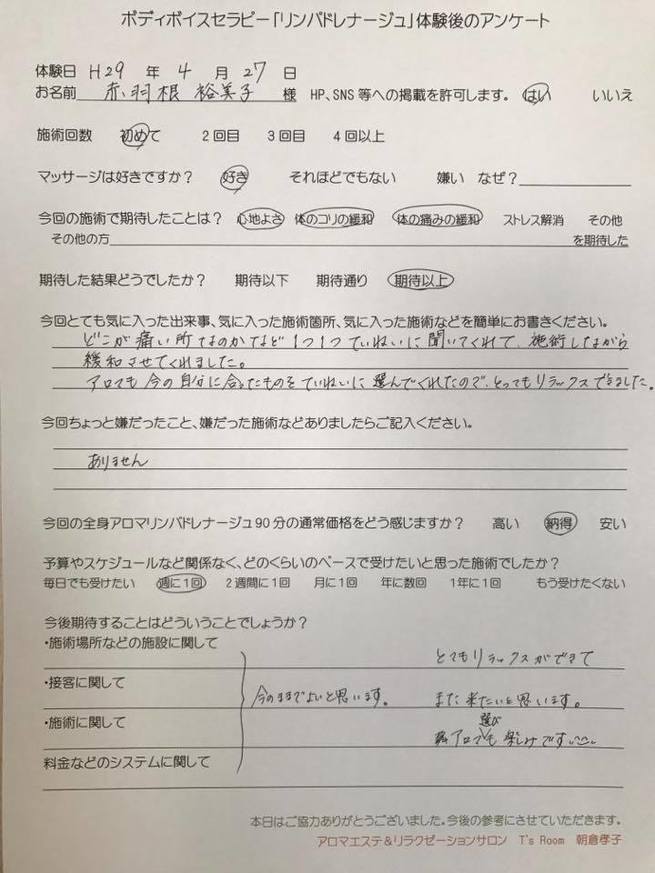 ボディボイスセラピー「リンパドレナージュ」体験後のアンケート
体験日 H29 年 4 月 27 日
お名前 赤羽根 裕美子 様 HP、SNS 等への掲載を許可します。 はい いいえ
施術回数 初めて 2回目 3回目 4回以上
マッサージは好きですか? 好き それほどでもない 嫌い なぜ?
今回の施術で期待したことは? 心地よさ 体のコリの緩和 体の痛みの緩和 ストレス解消 その他
その他の方 を期待した
期待した結果どうでしたか? 期待以下 期待通り 期待以上
今回とても気に入った出来事、気に入った施術箇所、気に入った施術などを簡単にお書きください。
どこが痛い所なのかなど1つ1つていねいに聞いてくれて、施術しながら
緩和させてくれました。
アロマも今の自分に合ったものをていねいに選んでくれたので、とってもリラックスできました。
今回ちょっと嫌だったこと、嫌だった施術などありましたらご記入ください。
ありません
今回の全身アロマリンパドレナージュ90分の通常価格をどう感じますか? 高い 納得 安い
予算やスケジュールなど関係なく、どのくらいのペースで受けたいと思った施術でしたか?
毎日でも受けたい 週に1回 2週間に1回 月に1回 年に数回 1年に1回 もう受けたくない
今後期待することはどういうことでしょうか?
・施術場所などの施設に関して
とてもリラックスができて
・接客に関して
今のままでよいと思います。 また来たいと思います。
・施術に関して
選び
アロマも楽しみです
料金などのシステムに関して
本日はご協力ありがとうございました。今後の参考にさせていただきます。
アロマエステ&リラクゼーションサロン T's Room 朝倉孝子